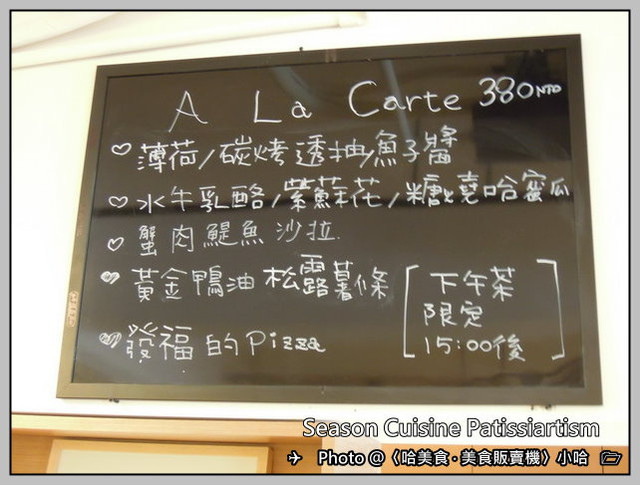 A La Carte 380 NTD
♡ 薄荷/碳烤透抽/魚子醬
♡ 水牛乳酪/紫蘇花/糖燒哈蜜瓜
♡ 蟹肉鯷魚沙拉
♥ 黃金鴨油松露薯條
♥ 發福的Pizza
下午茶
限定
15:00後
Season Cuisine Patissiartism
Photo @〈哈美食·美食販賣機〉小哈